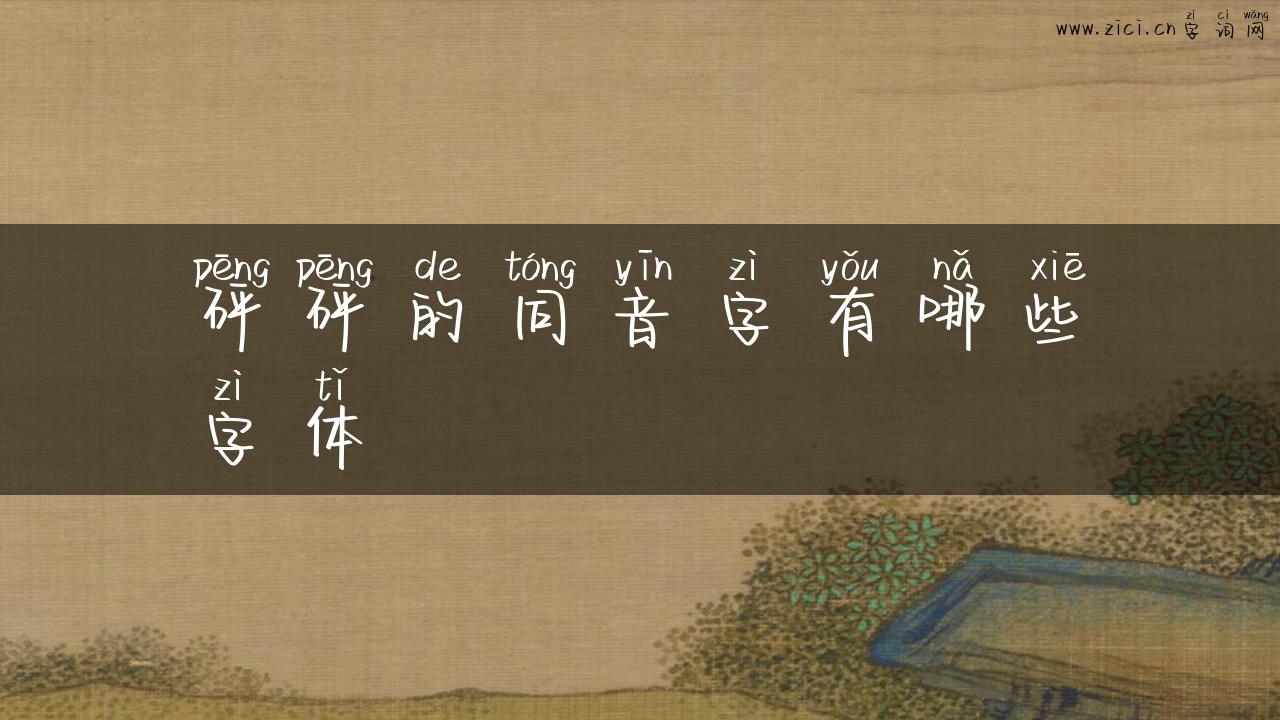 zì cí wǎng
www.zici.cn字词网
pēng pēng de tóng yīn zì yǒu nǎ xiē
砰砰的同音字有哪些
zì tǐ
字体